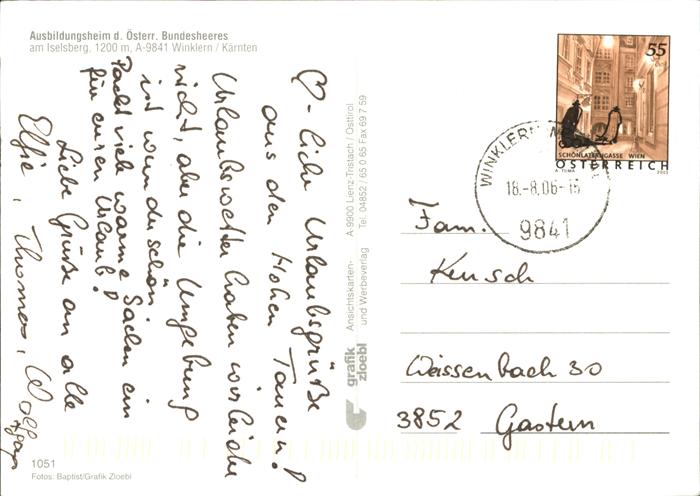 Ausbildungsheim d. Österr. Bundesheeres
am Iselsberg, 1200 m, A-9841 Winklern / Kärnten
♡-liche Urlaubsgrüße
aus den Hohen Tauern!
Urlaubswetter haben wir leider
nicht, aber die Umgebung
ist wunderschön.
Packt viele warme Sachen ein
für euren Urlaub!
Liebe Grüße an alle
Elfie, Thomas, Wolfgang
1051
Fotos: Baptist/Grafik Zloebl
grafik
zloebl
Ansichtskarten-
und Werbeverlag
A-9900 Lienz-Tristach / Osttirol
Tel. 04852 / 65 0 65 Fax 69 7 59
55
SCHÖNLATERNGASSE WIEN
A. TUMA 2003
ÖSTERREICH
WINKLERN
18.-8.06-15
9841
Fam.
Keusch
Weissenbach 30
3852 Gastern